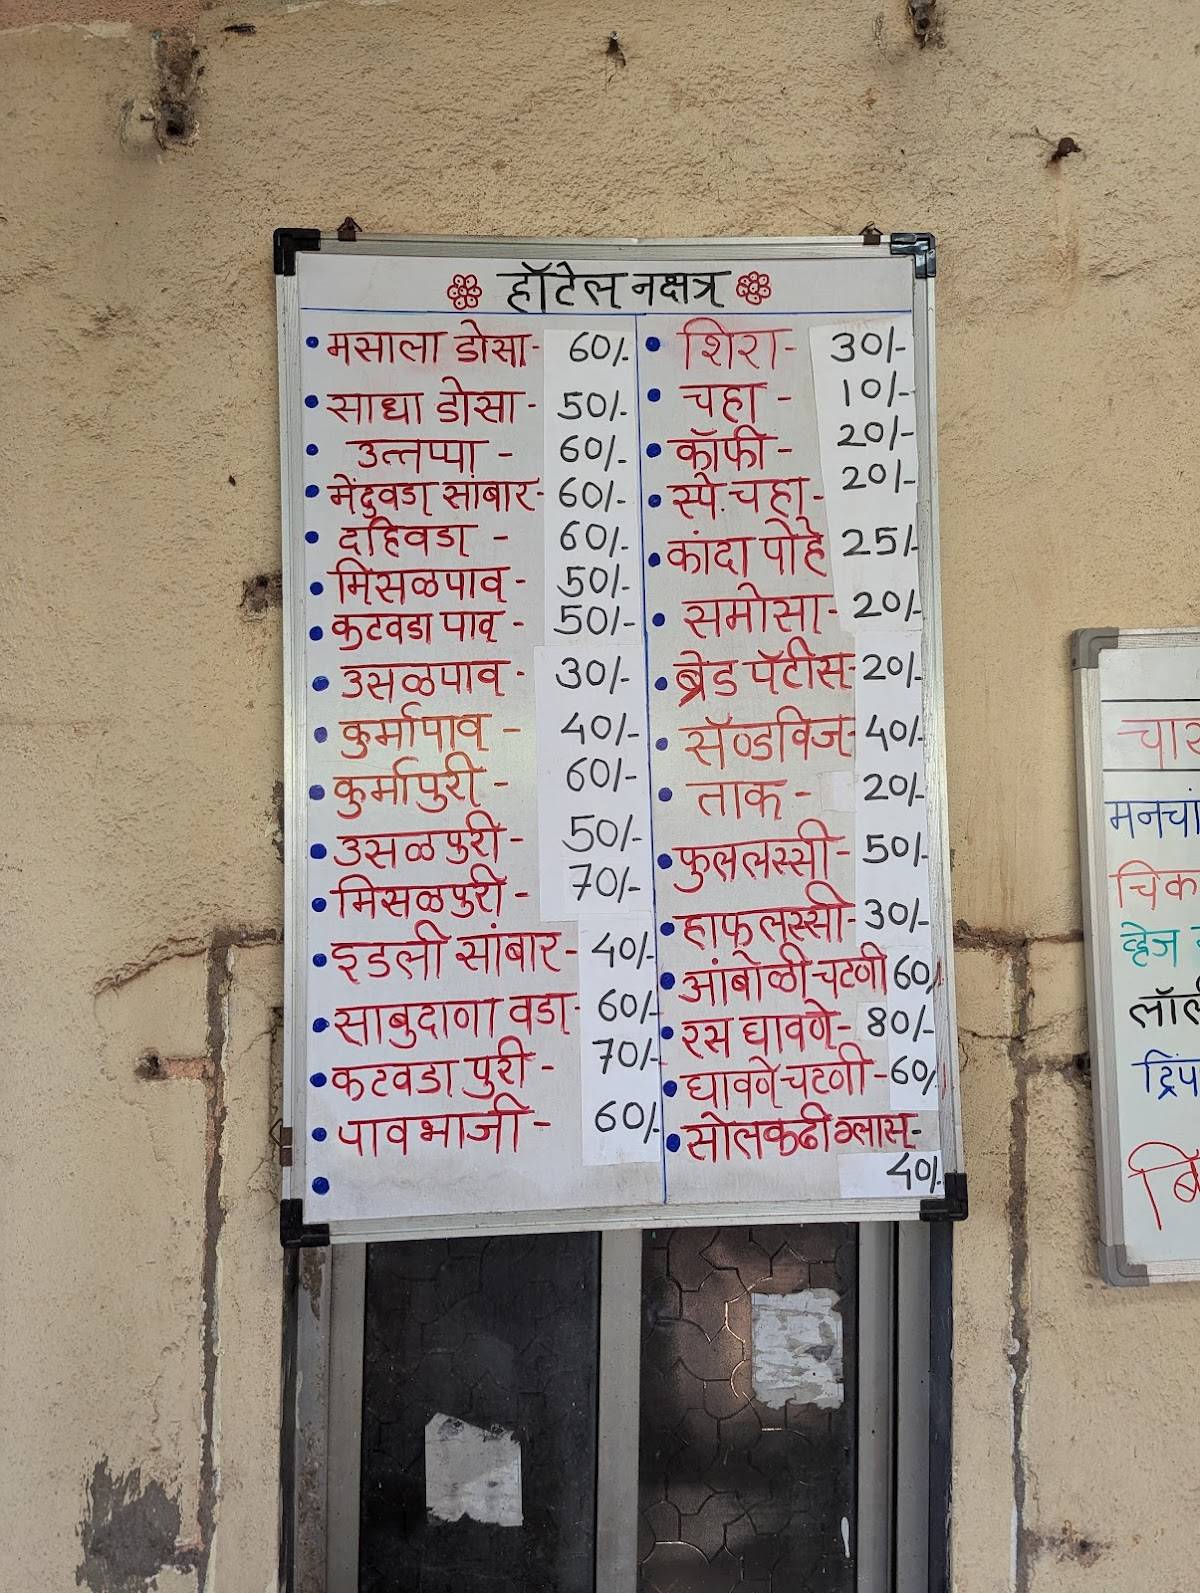 हॉटेल नक्षत्र
मसाला डोसा- 60/-
साधा डोसा- 50/-
उत्तप्पा - 60/-
मेंदुवडा सांबार- 60/-
दहिवडा - 60/-
मिसळपाव- 50/-
कटवडा पाव - 50/-
उसळपाव - 30/-
कुर्मापाव - 40/-
कुर्मापुरी - 60/-
उसळपुरी - 50/-
मिसळपुरी- 70/-
इडली सांबार- 40/-
साबुदाणा वडा- 60/-
कटवडा पुरी - 70/-
पावभाजी - 60/-
शिरा- 30/-
चहा - 10/-
कॉफी - 20/-
स्पे.चहा- 20/-
कांदा पोहे 25/-
समोसा- 20/-
ब्रेड पॅटीस- 20/-
सॅण्डविज- 40/-
ताक - 20/-
फुललस्सी - 50/-
हाफलस्सी- 30/-
आंबोळी चटणी 60/-
रस घावणे- 80/-
घावणे चटणी - 60/-
सोलकढी ग्लास-
40/-
मनचां
चिक
व्हेज